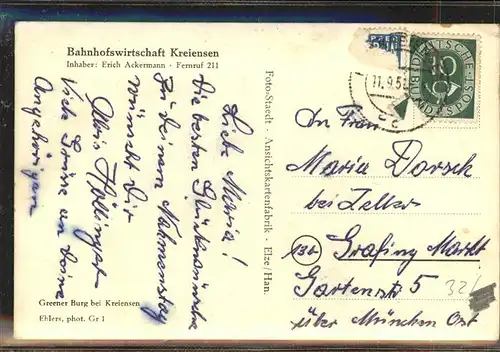 Bahnhofswirtschaft Kreiensen
Inhaber: Erich Ackermann · Fernruf 211
Liebe Maria!
Die besten Glückwünsche
zu Deinem Namenstag
wünscht Dir
Alois
Viele Grüße an Deine
Angehörigen
Greener Burg bei Kreiensen
Ehlers, phot. Gr 1
Foto-Staedt · Ansichtskartenfabrik · Elze/Han.
DEUTSCHE
BUNDESPOST
10
11.9.5
An Frau
Maria Dorsch
bei Zeller
13b Grafing Markt
Gartenstr 5
über München Ost
32/